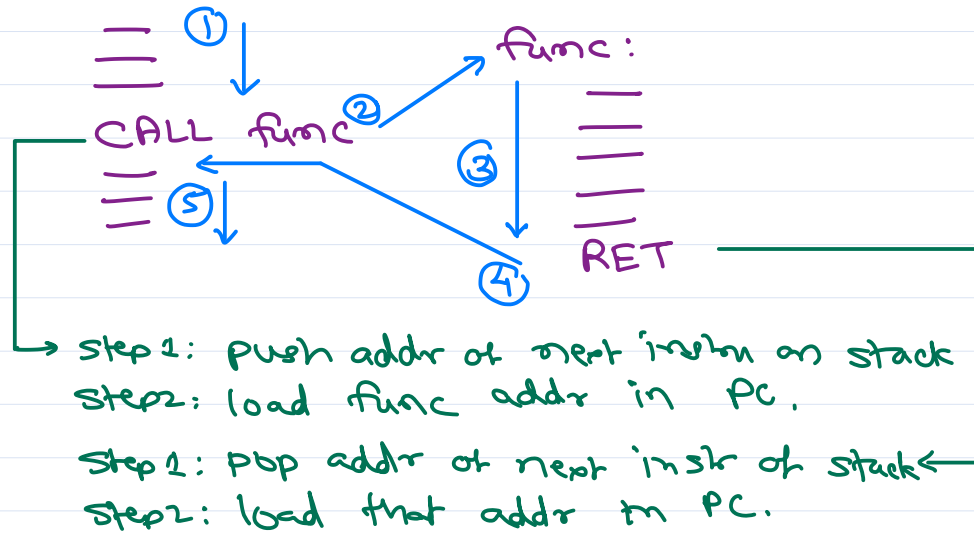 ①
func:
CALL func ②
③
⑤
RET
④
Step 1: push addr of next instrn on stack
Step2: load func addr in PC.
Step 1: pop addr of next instr of stack
Step2: load that addr in PC.